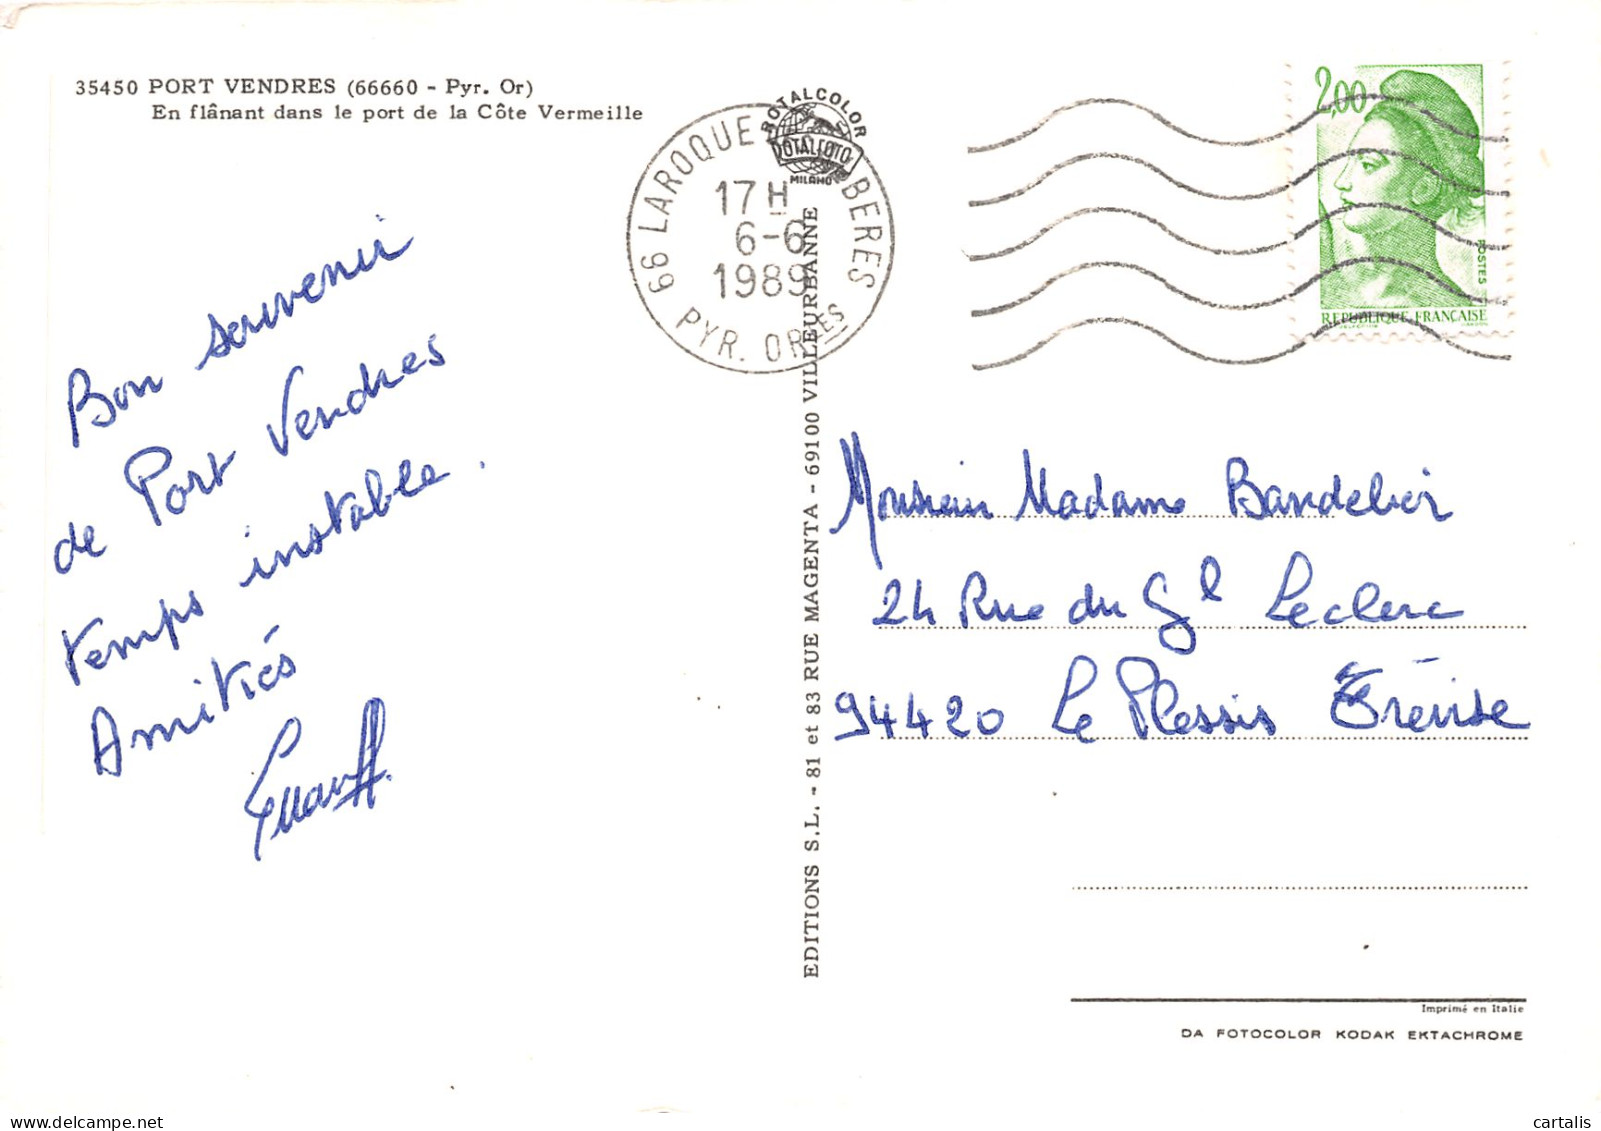 35450 PORT VENDRES (66660 - Pyr. Or)
En flânant dans le port de la Côte Vermeille
Bon souvenir
de Port Vendres
temps instable.
Amitiés
ROTALCOLOR
ROTALFOTO
MILANO
66 LAROQUE BERES
17 H
6-6
1989
PYR. ORLES
EDITIONS S.L. - 81 et 83 RUE MAGENTA - 69100 VILLEURBANNE
2,00
POSTES
REPUBLIQUE FRANÇAISE
Monsieur Madame Bandelier
24 Rue du Gl Leclerc
94420 Le Plessis Trévise
Imprimé en Italie
DA FOTOCOLOR KODAK EKTACHROME
cartalis
delcampe.net